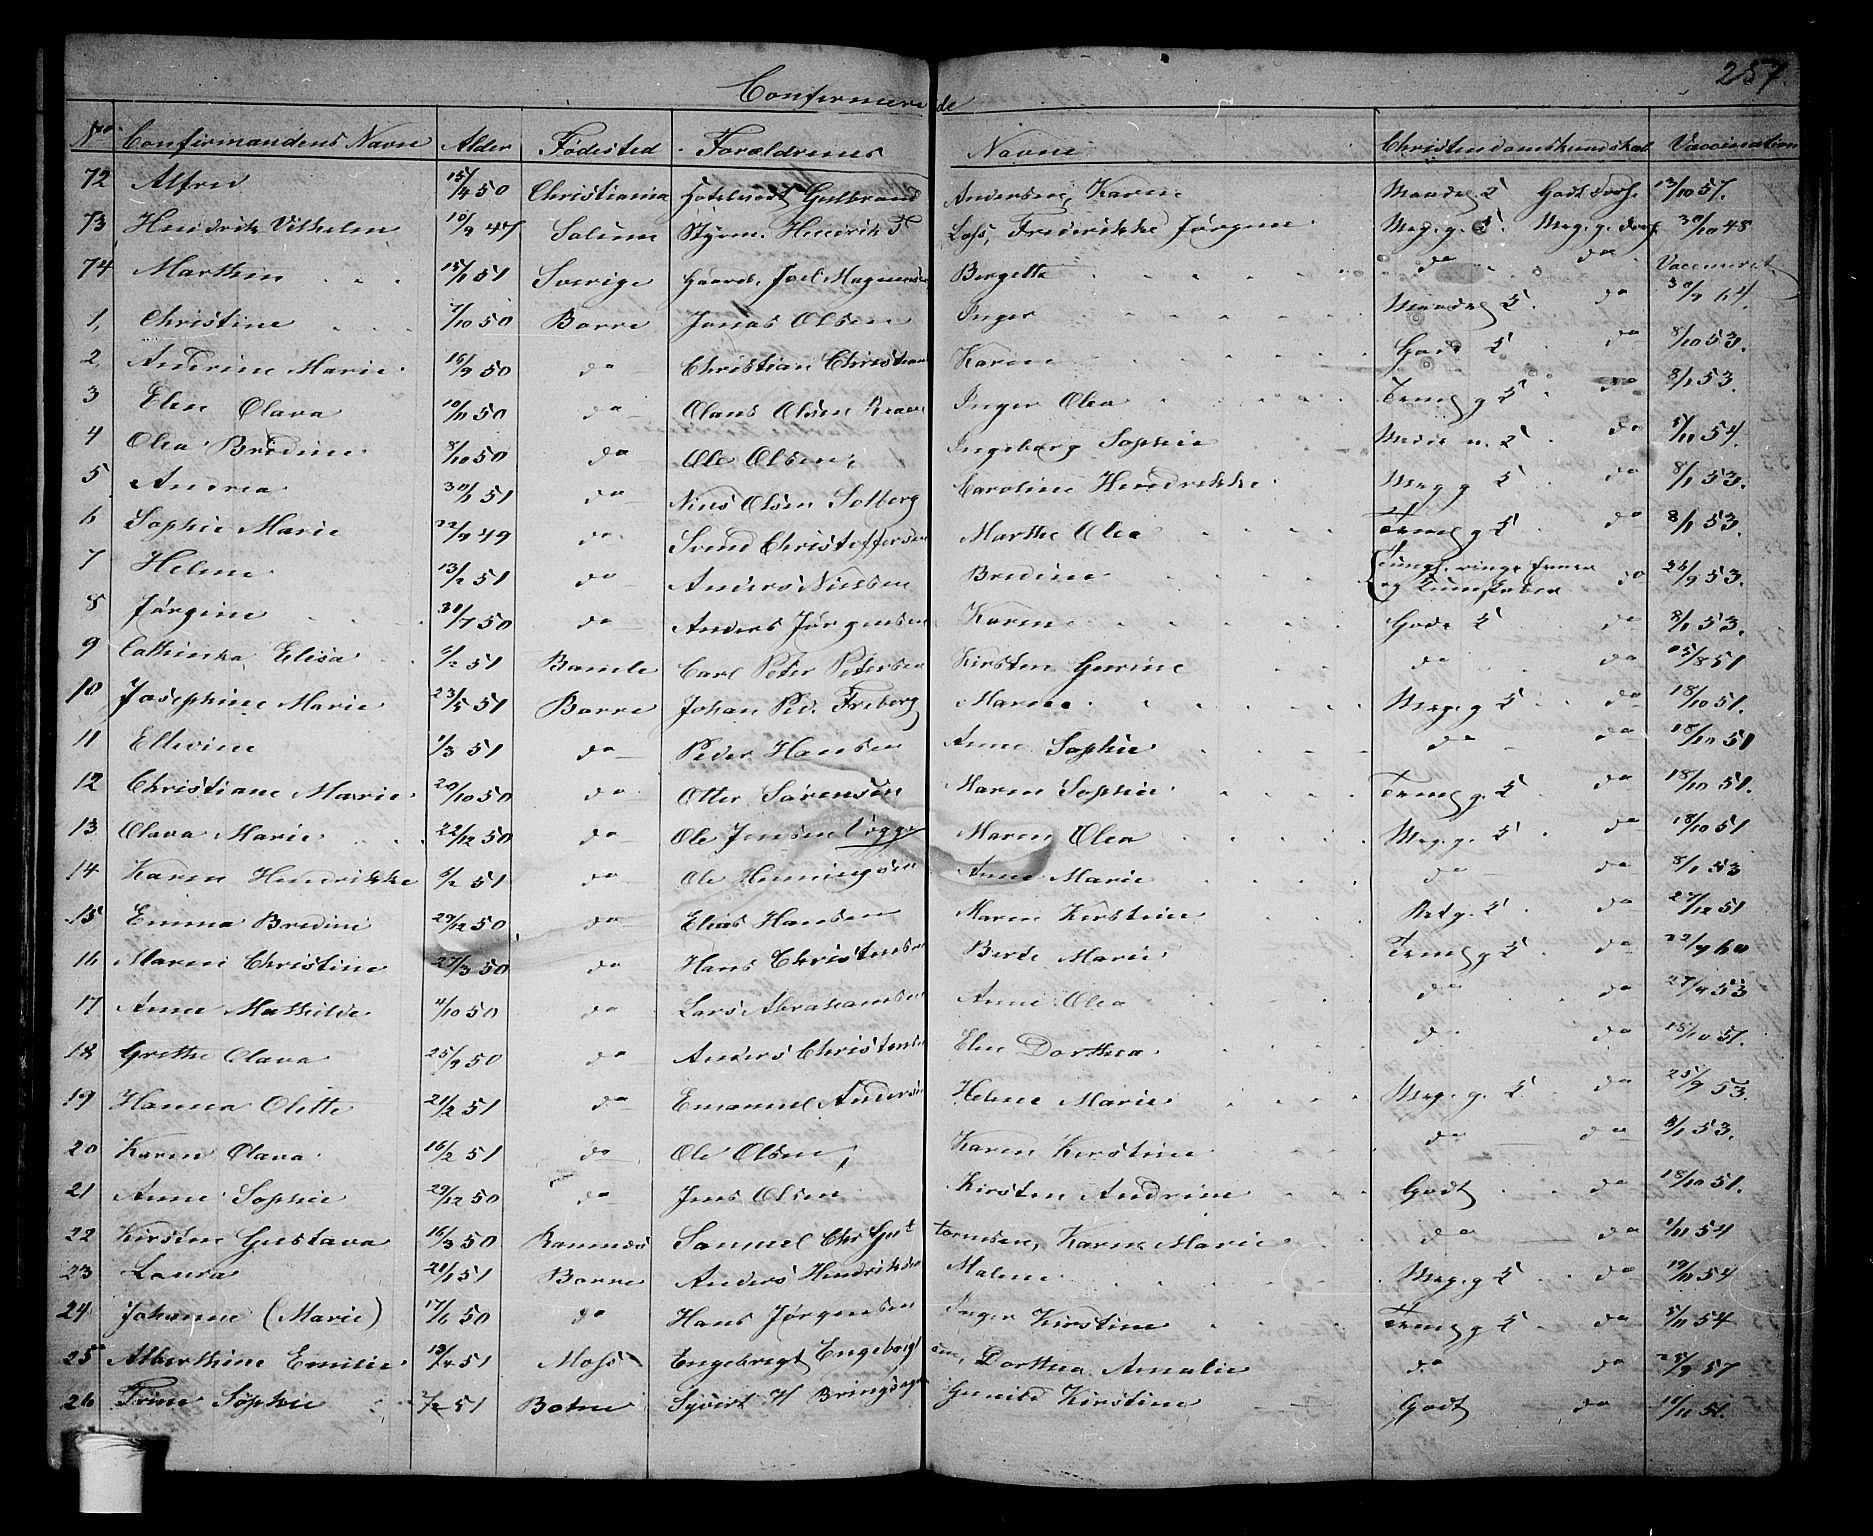 257.
Confirmerede
No. Confirmandens Navn Alder Fødested Forældrenes Navne Christendomskundskab Vaccination
72 Alfred 15/4 50 Christiania Gulbrand Andersen, Karen Maadel. Godt 13/10 57.
73 Hendrik Vilhelm 10/9 47 Solum Styrm. Hendrik T Loss, Frederikke Jørgine Meg. g. Meg. g. 30/10 48
74 Marthin 51 Sverige Gaard. Joel Magnussen Bergette do do Vaccineret
1, Christine 7/10 50 Borre Jonas Olsen Inger Maadel. do 30/9 64.
2, Andrine Marie 15/9 50 do Christian Christians Karen Gode do 8/10 53.
3 Elen Olava 10/11 50 do Olaus Olsen Inger Olea Temg. do 8/1 53.
4 Olea Bredine 8/10 50 do Ole Olsen, Ingeborg Sophie do 5/11 54.
5 Andrea 30/1 51 do Niels Olsen Solberg Caroline Hendrikke Meg. g do 8/1 53.
6 Sophie Marie 22/9 49 do Svend Christoffersen Marthe Olea Temg. do 8/1 53.
7 Helene 13/2 51 do Anders Nielsen Bredine ringe do 26/9 53.
og Kundskaber
8 Jørgine 31/7 50 do Anders Jørgensen Karen Gode do 8/1 53.
9 Cathinka Elisa 51 Bamle Carl Peter Petersen Kirsten Gurine do do 5/8 51
10 Josephine Marie 23/5 51 Borre Johan Ped. Freberg Maren Meg. g do 18/10 51.
11 Ellevine 1/3 51 do Peder Hansen Anne Sophie do do 18/10 51
12 Christiane Marie 20/10 50 do Otter Sørensen Maren Sophie Temg. do 18/10 51.
13 Olava Marie 22/12 50 do Ole Jensen Maren Olea Meg. g. do 18/10 51
14 Karen Hendrikke 51 do Ole Henningsen Anne Marie do do 8/1 53
15 Emma Bredine 29/12 50 do Elias Hansen Maren Kirstine do 27/12 51
16 Maren Christine 27/3 50 do Hans Christensen Berte Marie Temg. do 22/9 60
17 Anne Mathilde 11/10 50 do Lars Abrahamsen Anne Olea do do 27/4 53
18 Grethe Olava 25/9 50 do Anders Christensen Elen Dorthea do do 18/10 51.
19 Hanna Olette 21/2 51 do Emanuel Andersen Helene Marie Meg. g. do 25/9 53.
20 Karen Olava 16/2 51 do Ole Olsen, Karen Kirstine do do 8/1 53.
21 Anne Sophie 29/12 50 do Jens Olsen Kirsten Andrine Godt do 18/10 51.
22 Kirsten Gustava 16/3 50 Ramnæs Samuel Chr. Gut tormsen, Karen Marie do do 1/11 54
23 Laura 21/1 51 Borre Anders Hendriksen Malene Meg. g do 19/11 54
24 Johanne (Marie) 17/6 50 do Hans Jørgensen Inger Kirstine Temg. do 5/11 54
25 Alberthine Emilie 51 Moss Engebregt Engebregt sen, Dorthea Amalie do do 28/9 57
26 Trine Sophie 2/2 51 Botne Syvert H Bringsager Gunild Kirstine Godt do 10/11 51.